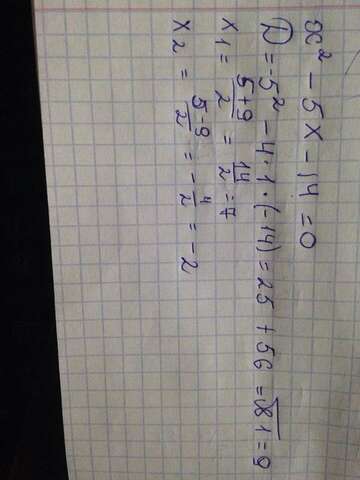 x² - 5x - 14 = 0
D = -5² - 4·1·(-14) = 25 + 56 = √81 = 9
x₁ = \frac{5+9}{2} = \frac{14}{2} = 7
x₂ = \frac{5-9}{2} = -\frac{4}{2} = -2